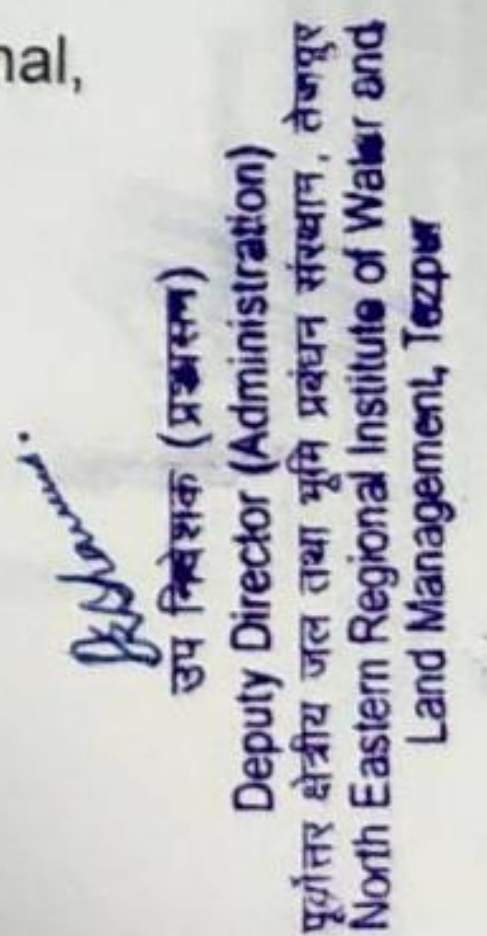 nal,
उप निदेशक (प्रशासन)
Deputy Director (Administration)
पूर्वोत्तर क्षेत्रीय जल तथा भूमि प्रबंधन संस्थान, तेजपुर
North Eastern Regional Institute of Water and
Land Management, Tezpur